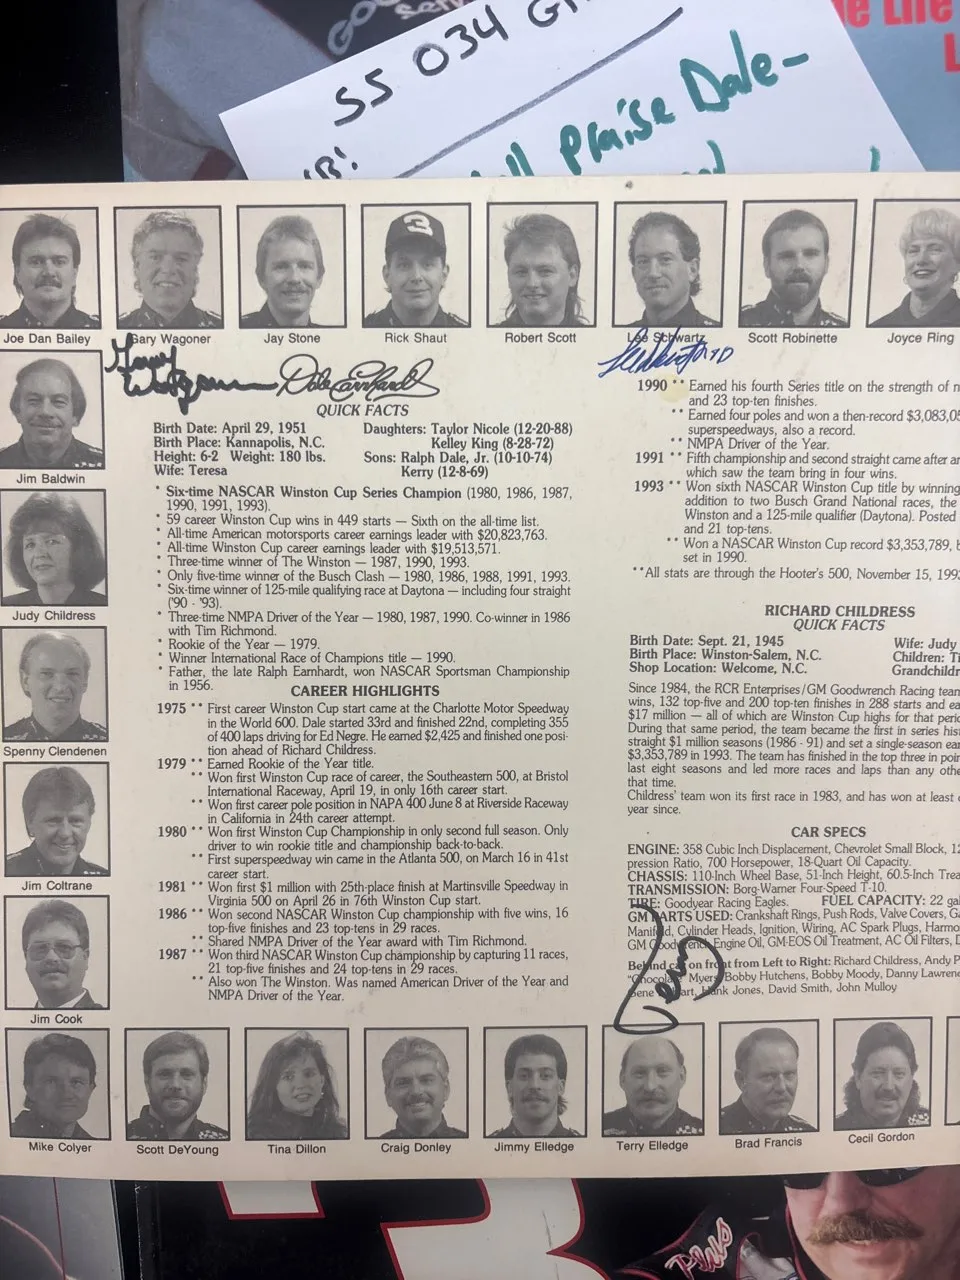 GOO
Serv
SS 034 G
e Life
L
'B'!
ll Praise Dale-
Joe Dan Bailey
Gary Wagoner
Jay Stone
Rick Shaut
Robert Scott
Lee Schwartz
Scott Robinette
Joyce Ring
Gary Wagoner
Dale Earnhardt
Jim Baldwin
Judy Childress
Spenny Clendenen
Jim Coltrane
Jim Cook
QUICK FACTS
Birth Date: April 29, 1951
Birth Place: Kannapolis, N.C.
Height: 6-2 Weight: 180 lbs.
Wife: Teresa
Daughters: Taylor Nicole (12-20-88)
Kelley King (8-28-72)
Sons: Ralph Dale, Jr. (10-10-74)
Kerry (12-8-69)
* Six-time NASCAR Winston Cup Series Champion (1980, 1986, 1987,
1990, 1991, 1993).
* 59 career Winston Cup wins in 449 starts — Sixth on the all-time list.
* All-time American motorsports career earnings leader with $20,823,763.
* All-time Winston Cup career earnings leader with $19,513,571.
* Three-time winner of The Winston — 1987, 1990, 1993.
* Only five-time winner of the Busch Clash — 1980, 1986, 1988, 1991, 1993.
* Six-time winner of 125-mile qualifying race at Daytona — including four straight
('90 - '93).
* Three-time NMPA Driver of the Year — 1980, 1987, 1990. Co-winner in 1986
with Tim Richmond.
* Rookie of the Year — 1979.
* Winner International Race of Champions title — 1990.
* Father, the late Ralph Earnhardt, won NASCAR Sportsman Championship
in 1956.
CAREER HIGHLIGHTS
1975 ** First career Winston Cup start came at the Charlotte Motor Speedway
in the World 600. Dale started 33rd and finished 22nd, completing 355
of 400 laps driving for Ed Negre. He earned $2,425 and finished one posi-
tion ahead of Richard Childress.
1979 ** Earned Rookie of the Year title.
** Won first Winston Cup race of career, the Southeastern 500, at Bristol
International Raceway, April 19, in only 16th career start.
** Won first career pole position in NAPA 400 June 8 at Riverside Raceway
in California in 24th career attempt.
1980 ** Won first Winston Cup Championship in only second full season. Only
driver to win rookie title and championship back-to-back.
** First superspeedway win came in the Atlanta 500, on March 16 in 41st
career start.
1981 ** Won first $1 million with 25th-place finish at Martinsville Speedway in
Virginia 500 on April 26 in 76th Winston Cup start.
1986 ** Won second NASCAR Winston Cup championship with five wins, 16
top-five finishes and 23 top-tens in 29 races.
** Shared NMPA Driver of the Year award with Tim Richmond.
1987 ** Won third NASCAR Winston Cup championship by capturing 11 races,
21 top-five finishes and 24 top-tens in 29 races.
** Also won The Winston. Was named American Driver of the Year and
NMPA Driver of the Year.
1990 ** Earned his fourth Series title on the strength of n
and 23 top-ten finishes.
** Earned four poles and won a then-record $3,083,05
superspeedways, also a record.
** NMPA Driver of the Year.
1991 ** Fifth championship and second straight came after an
which saw the team bring in four wins.
1993 ** Won sixth NASCAR Winston Cup title by winning
addition to two Busch Grand National races, the
Winston and a 125-mile qualifier (Daytona). Posted
and 21 top-tens.
** Won a NASCAR Winston Cup record $3,353,789, b
set in 1990.
**All stats are through the Hooter's 500, November 15, 1993
RICHARD CHILDRESS
QUICK FACTS
Birth Date: Sept. 21, 1945
Birth Place: Winston-Salem, N.C.
Shop Location: Welcome, N.C.
Wife: Judy
Children: Ti
Grandchildr
Since 1984, the RCR Enterprises/GM Goodwrench Racing team
wins, 132 top-five and 200 top-ten finishes in 288 starts and ea
$17 million — all of which are Winston Cup highs for that perio
During that same period, the team became the first in series hist
straight $1 million seasons (1986 - 91) and set a single-season ear
$3,353,789 in 1993. The team has finished in the top three in poin
last eight seasons and led more races and laps than any othe
that time.
Childress' team won its first race in 1983, and has won at least
year since.
CAR SPECS
ENGINE: 358 Cubic Inch Displacement, Chevrolet Small Block, 12
pression Ratio, 700 Horsepower, 18-Quart Oil Capacity.
CHASSIS: 110-Inch Wheel Base, 51-Inch Height, 60.5-Inch Trea
TRANSMISSION: Borg-Warner Four-Speed T-10.
TIRE: Goodyear Racing Eagles. FUEL CAPACITY: 22 gal
GM PARTS USED: Crankshaft Rings, Push Rods, Valve Covers, Ga
Manifold, Cylinder Heads, Ignition, Wiring, AC Spark Plugs, Harmo
GM Goodwrench Engine Oil, GM-EOS Oil Treatment, AC Oil Filters, D
Behind car on front from Left to Right: Richard Childress, Andy P
"Chocolate" Myers, Bobby Hutchens, Bobby Moody, Danny Lawrenc
Hank Jones, David Smith, John Mulloy
Mike Colyer
Scott DeYoung
Tina Dillon
Craig Donley
Jimmy Elledge
Terry Elledge
Brad Francis
Cecil Gordon
3
Plus